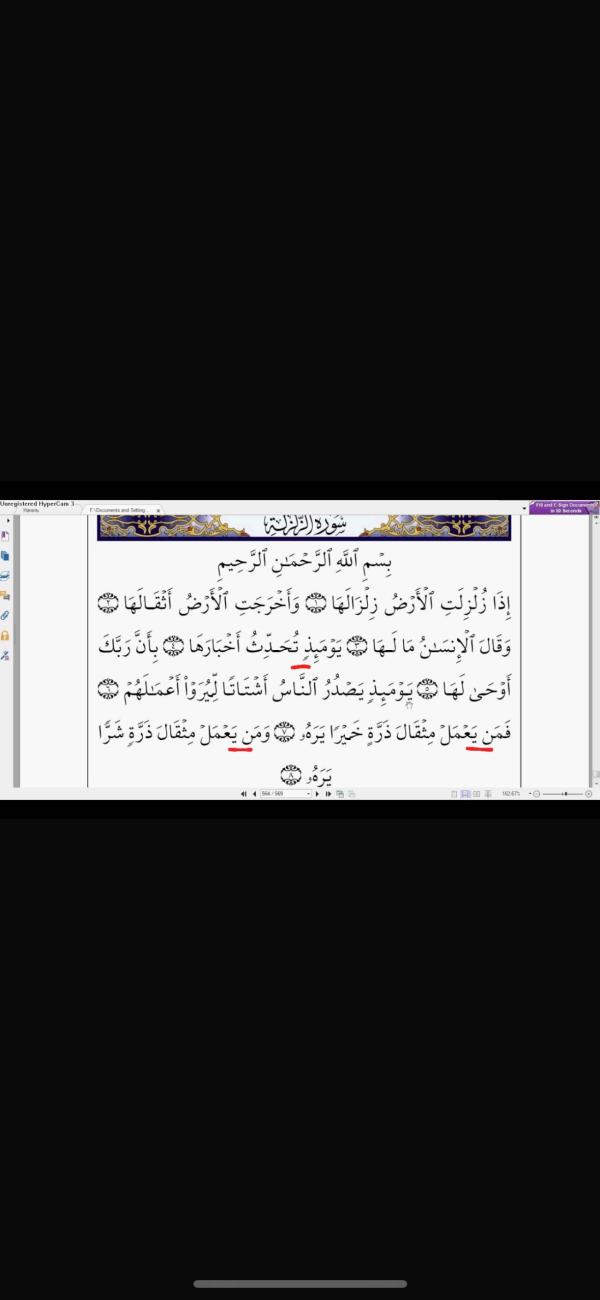 Unregistered HyperCam 3
F:\Documents and Setting...
Fill and E-Sign Documents
in 60 Seconds
سُورَةُ الزَّلْزَلَةِ
بِسْمِ ٱللَّهِ ٱلرَّحْمَٰنِ ٱلرَّحِيمِ
إِذَا زُلْزِلَتِ ٱلْأَرْضُ زِلْزَالَهَا ١ وَأَخْرَجَتِ ٱلْأَرْضُ أَثْقَالَهَا ٢
وَقَالَ ٱلْإِنسَٰنُ مَا لَهَا ٣ يَوْمَئِذٍ تُحَدِّثُ أَخْبَارَهَا ٤ بِأَنَّ رَبَّكَ
أَوْحَىٰ لَهَا ٥ يَوْمَئِذٍ يَصْدُرُ ٱلنَّاسُ أَشْتَاتًا لِّيُرَوْا۟ أَعْمَٰلَهُمْ ٦
فَمَن يَعْمَلْ مِثْقَالَ ذَرَّةٍ خَيْرًا يَرَهُۥ ٧ وَمَن يَعْمَلْ مِثْقَالَ ذَرَّةٍ شَرًّا
يَرَهُۥ ٨
564 / 569
162.67%